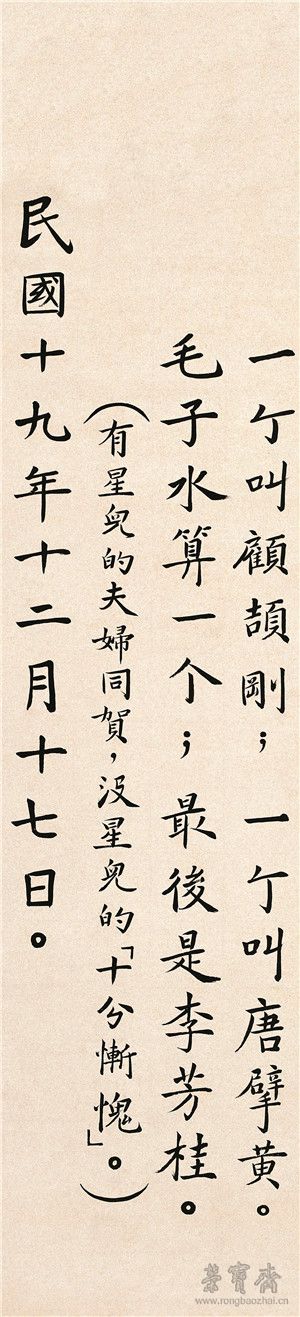 一亇叫顧頡剛；一亇叫唐擘黃。
毛子水算一个；最後是李芳桂。
（有星兒的夫婦同賀，沒星兒的「十分慚愧」。）
民國十九年十二月十七日。
榮寶齋
www.rongbaozhai.cn